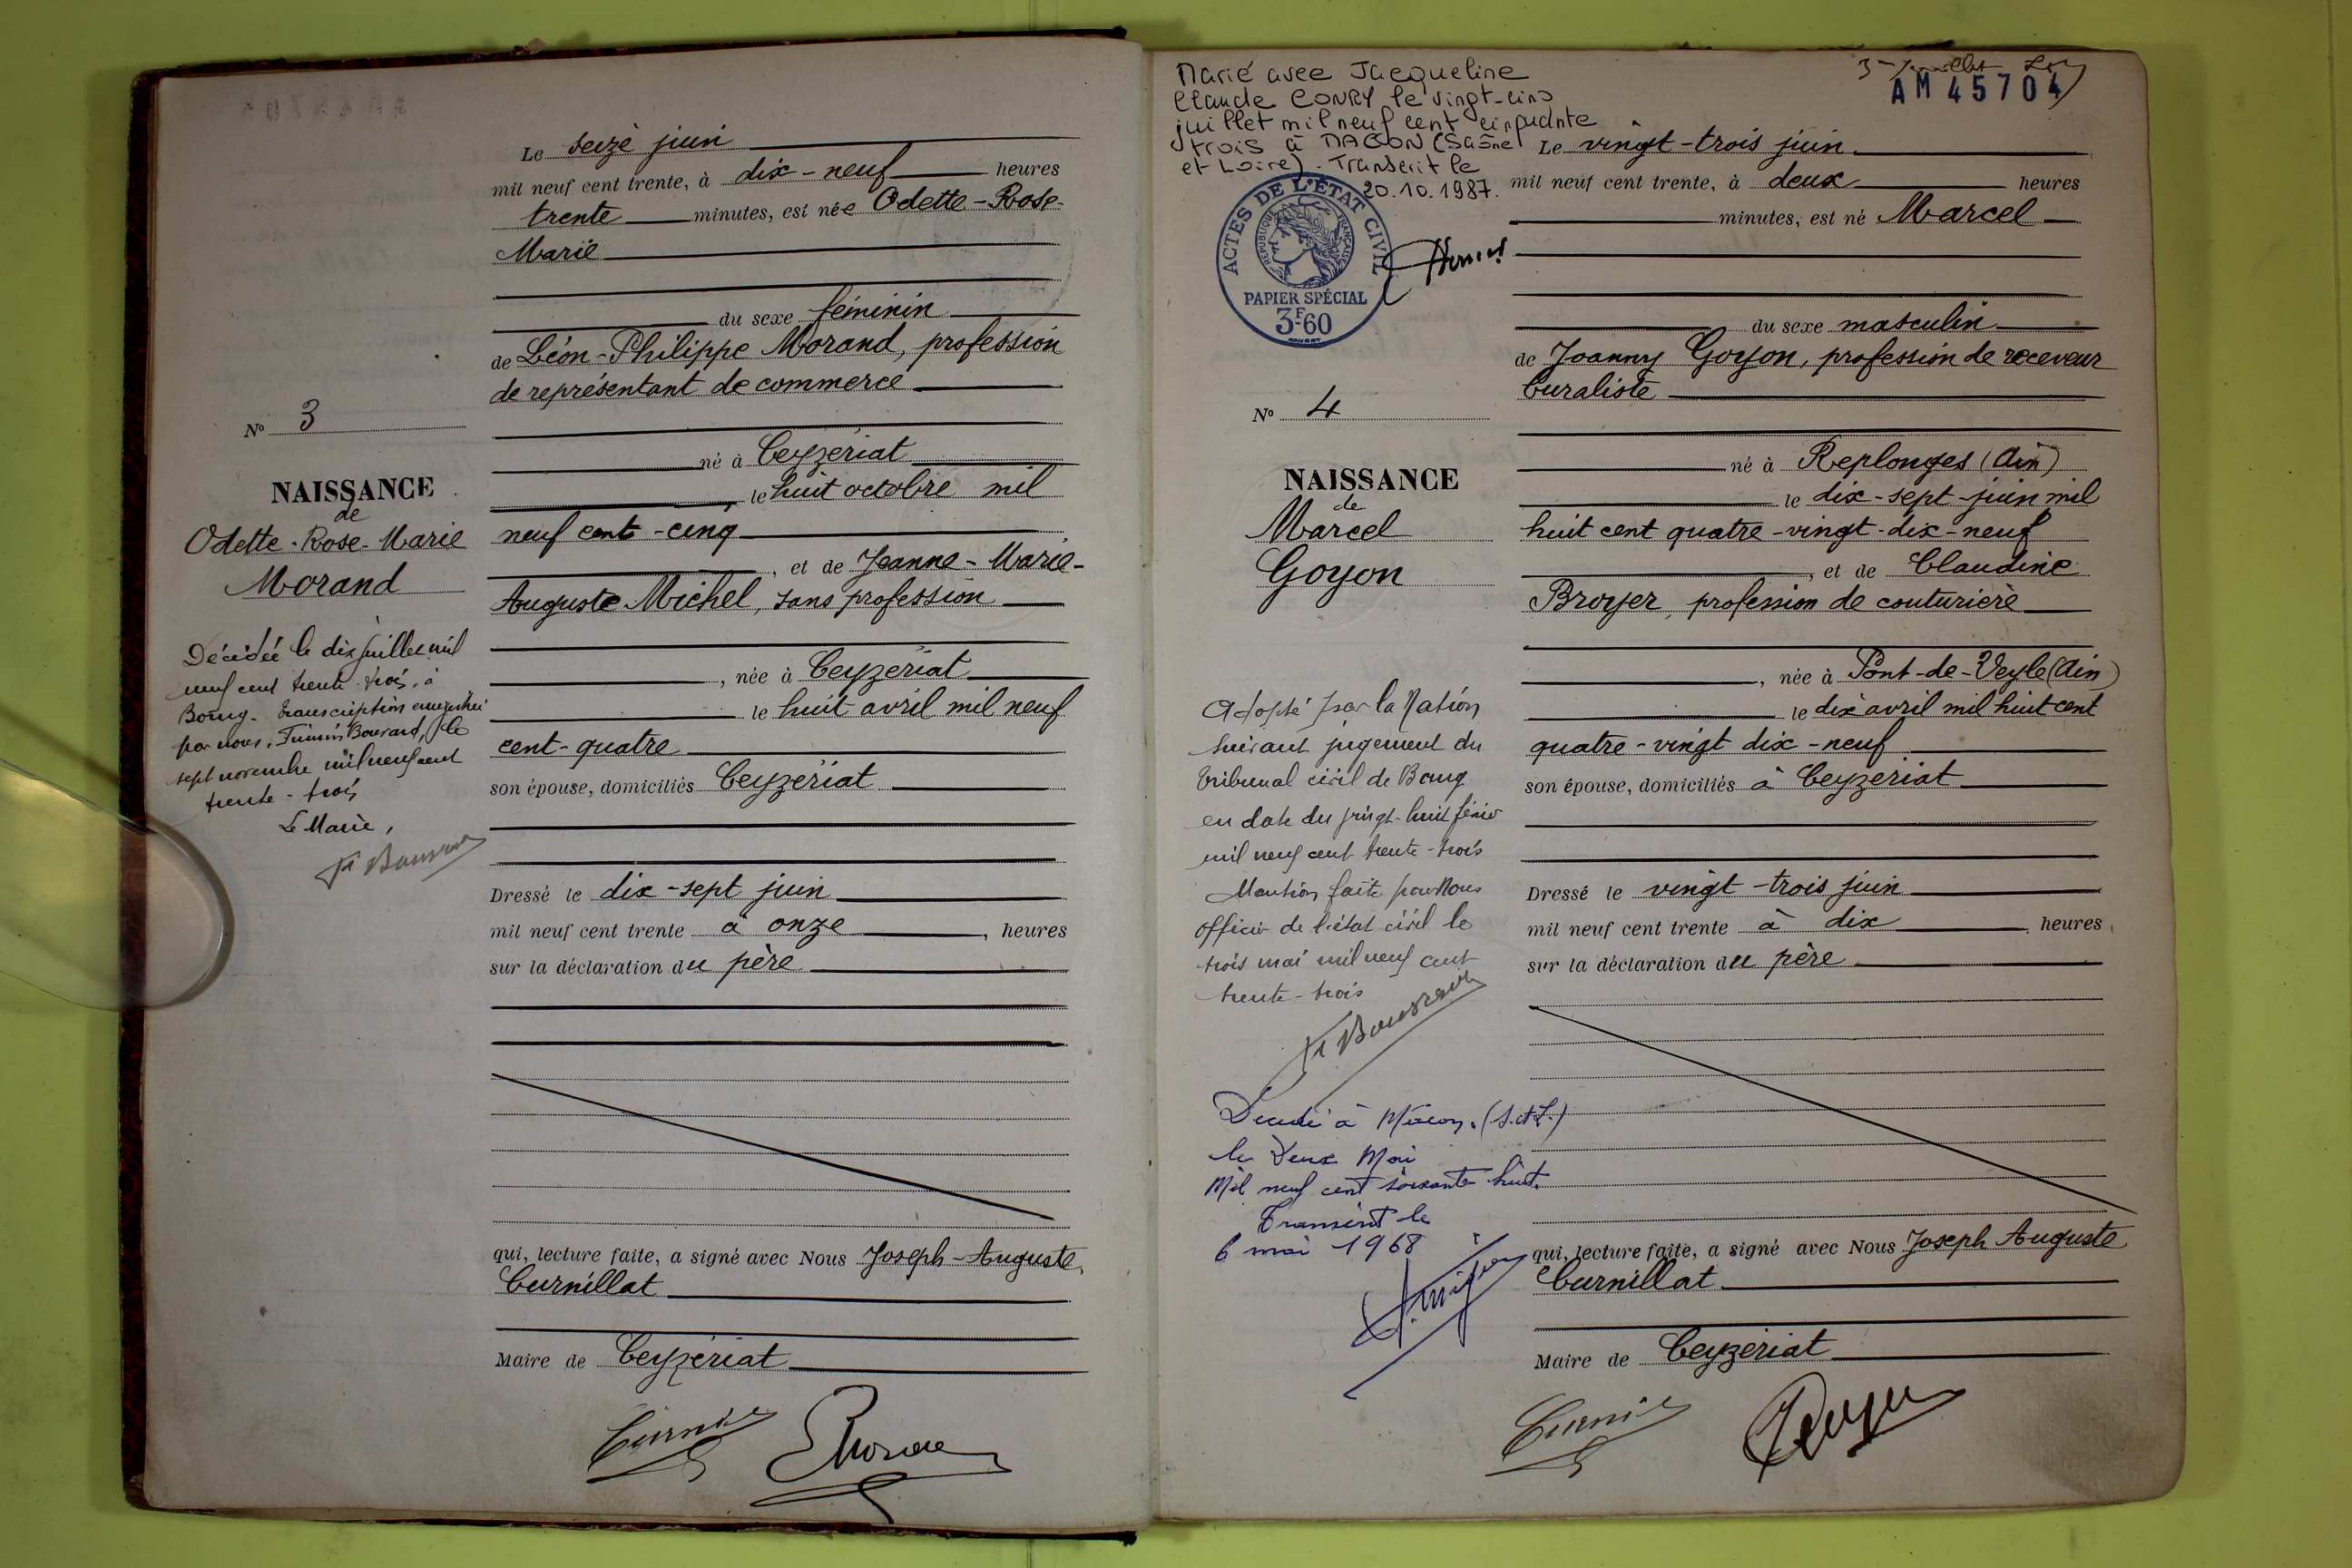 Le seize juin
mil neuf cent trente, à dix-neuf heures
trente minutes, est née Odette-Rose-
Marie
du sexe féminin
de Léon-Philippe Morand, profession
de représentant de commerce
né à Ceyzériat
le huit octobre mil
neuf cent-cinq
, et de Jeanne-Marie-
Auguste Michel, sans profession
, née à Ceyzériat
le huit avril mil neuf
cent-quatre
son épouse, domiciliés Ceyzériat
Dressé le dix-sept juin
mil neuf cent trente à onze, heures
sur la déclaration du père
qui, lecture faite, a signé avec Nous Joseph-Auguste
Curnillat
Maire de Ceyzériat
N° 3
NAISSANCE
de
Odette-Rose-Marie
Morand
Décédée le dix juillet mil
neuf cent trente-trois, à
Bourg. Transcription
par nous, le
sept novembre mil neuf cent
trente-trois
Le Maire,
Marié avec Jacqueline
Claude CONRY le vingt-cinq
juillet mil neuf cent cinquante
trois à MACON (Saône
et Loire). Transcrit le
20.10.1987.
ACTES DE L'ÉTAT CIVIL
RÉPUBLIQUE FRANÇAISE
PAPIER SPÉCIAL
3F60
N° 4
NAISSANCE
de
Marcel
Goyon
Adopté par la Nation
suivant jugement du
Tribunal civil de Bourg
en date du vingt-huit février
mil neuf cent trente-trois
Mention faite par Nous
officier de l'état civil le
trois mai mil neuf cent
trente-trois
Décédé à Mâcon. (S.et L.)
le deux Mai
Mil neuf cent soixante huit.
Transcrit le
6 mai 1968
AM 45704
Le vingt-trois juin
mil neuf cent trente, à deux heures
minutes, est né Marcel
du sexe masculin
de Joanny Goyon, profession de receveur
buraliste
né à Replonges (Ain)
le dix-sept juin mil
huit cent quatre-vingt-dix-neuf
, et de Claudine
Broyer, profession de couturière
, née à Pont-de-Veyle (Ain)
le dix avril mil huit cent
quatre-vingt dix-neuf
son épouse, domiciliés à Ceyzériat
Dressé le vingt-trois juin
mil neuf cent trente à dix heures
sur la déclaration du père
qui, lecture faite, a signé avec Nous Joseph Auguste
Curnillat
Maire de Ceyzériat